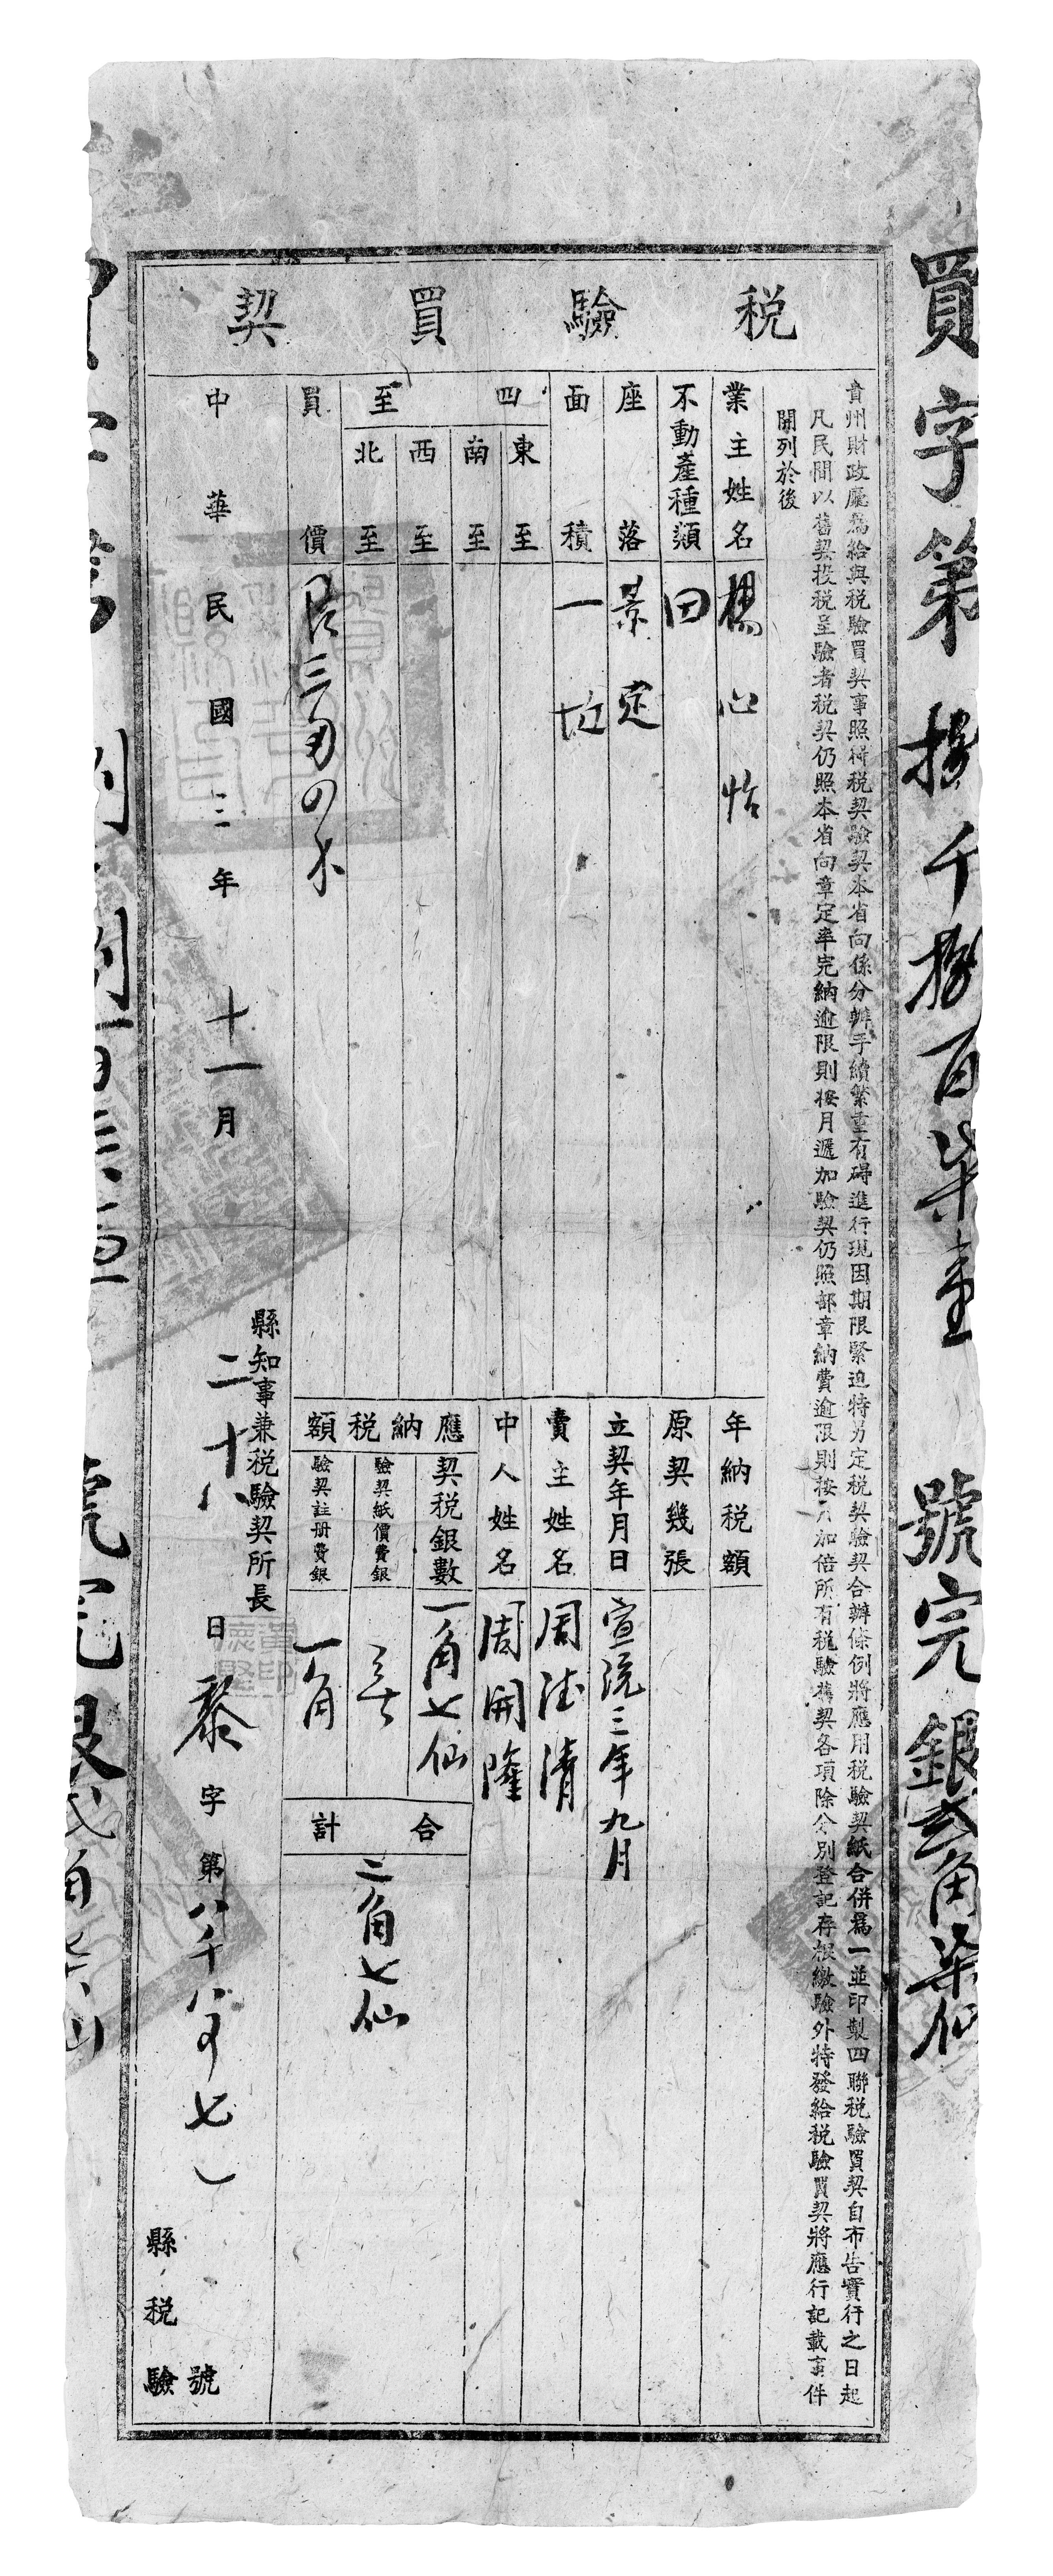 買字第捌千捌百柒壹 號完銀貳角柒仙
税驗買契
貴州財政廳爲給與税驗買契事照得税契驗契本省向係分辦手續繁重有碍進行現因期限緊迫特另定税契驗契合辦條例將應用税驗契紙合併爲一並印製四聯税驗買契自布告實行之日起
凡民間以舊契投税呈驗者税契仍照本省向章定率完納逾限則按月遞加驗契仍照部章納費逾限則按月加倍所有税驗舊契各項除分別登記存根繳驗外特發給税驗買契將應行記載事件
開列於後
業主姓名 楊心怡
不動產種類 田
座落 景定
面積 一坵
四至
東至
南至
西至
北至
買價 艮三両四不
年納税額
原契幾張
立契年月日 宣統三年九月
賣主姓名 周德清
中人姓名 周開隆
應納税額
契税銀數 一角七仙
驗契紙價費銀
驗契註册費銀 一角
合計 二角七仙
縣知事兼税驗契所長
中華民國三年十一月二十八日黎字第八千八百七 號
縣税驗